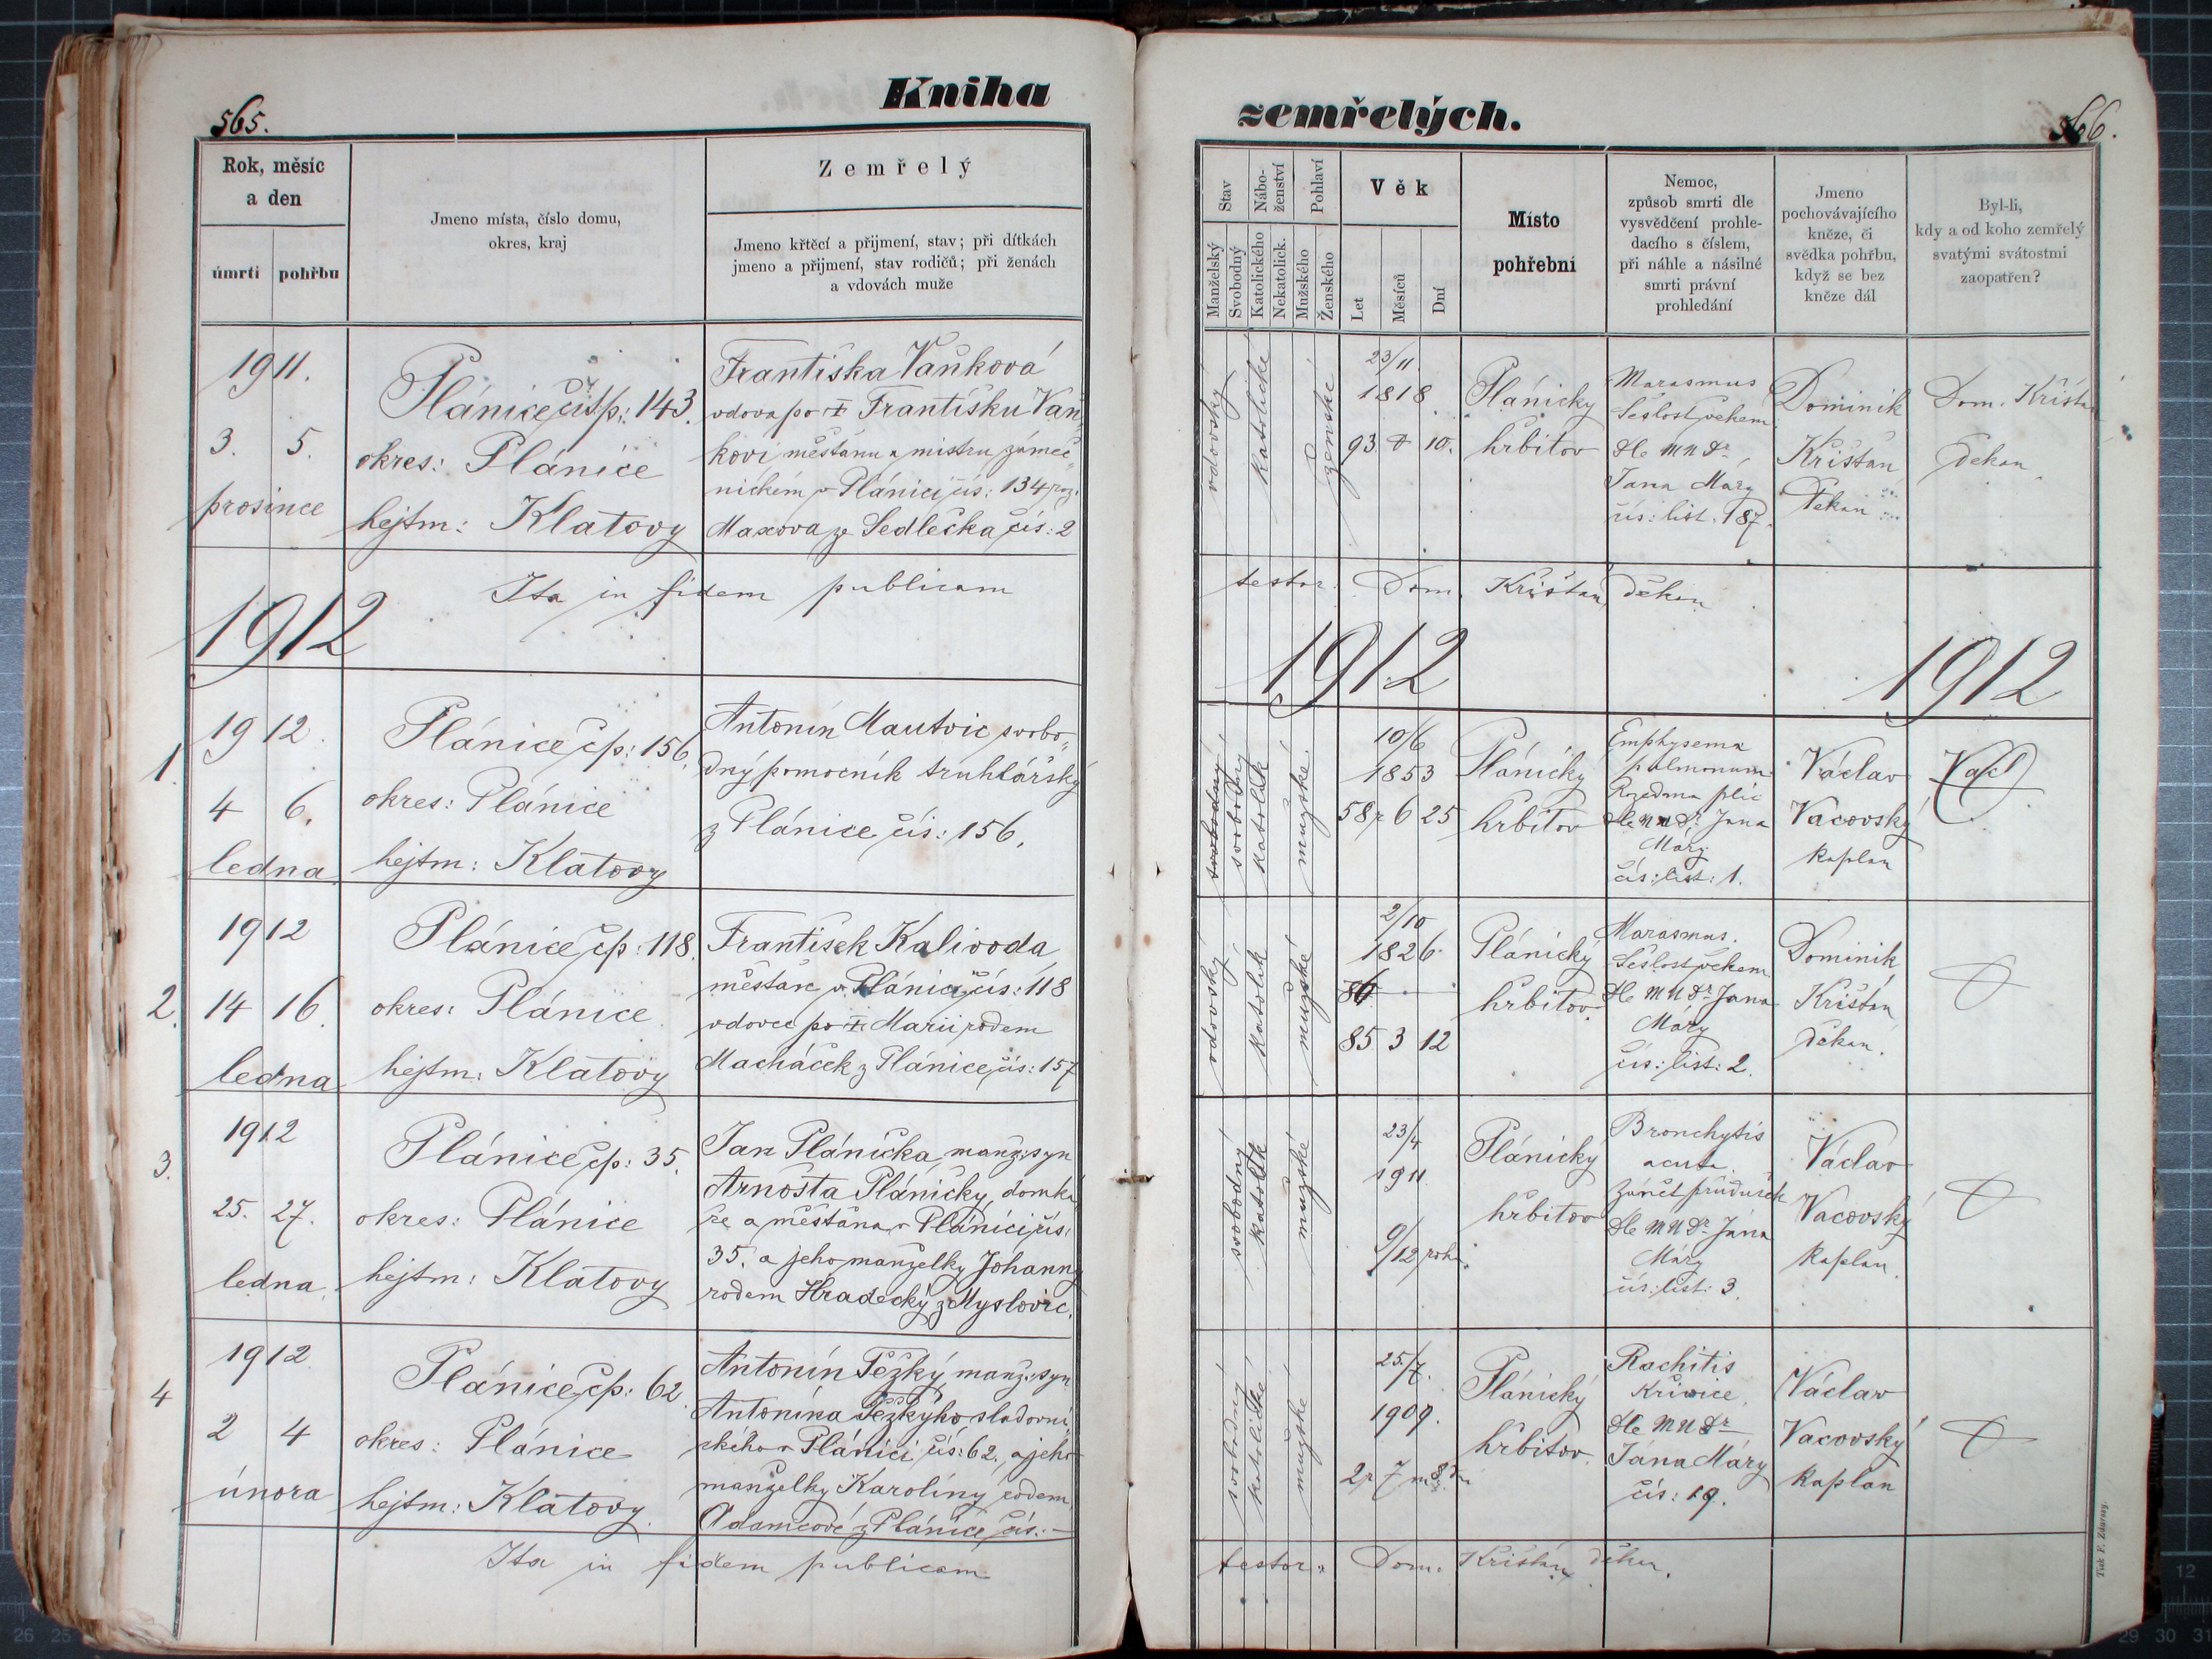 565.
Kniha
Rok, měsíc
a den
úmrtí pohřbu
Jmeno místa, číslo domu,
okres, kraj
Zemřelý
Jmeno křtěcí a přijmení, stav; při dítkách
jmeno a přijmení, stav rodičů; při ženách
a vdovách muže
1911.
3. 5.
prosince
Plánice čís: 143.
okres: Plánice
hejtm: Klatovy
Františka Vaňková
vdova po † Františku Vaň„
kovi měšťanu a mistru zámeč„
nickém v Plánici čís: 134 roz.
Maxova ze Sedlečka čís: 2
Ita in fidem publicam
1912
1.
1912.
4 6.
ledna
Plánice čp: 156.
okres: Plánice
hejtm: Klatovy
Antonín Mautvic svobo„
dný pomocník truhlářský
z Plánice čís: 156.
2.
1912
14 16.
ledna
Plánice čp: 118.
okres: Plánice
hejtm: Klatovy
František Kalivoda
měšťan v Plánici čís: 118
vdovec po † Marii rodem
Macháček z Plánice čís: 157
3.
1912
25. 27.
ledna
Plánice čp: 35.
okres: Plánice
hejtm: Klatovy
Jan Plánička, manž: syn
Arnošta Pláničky, domká
ře a měšťana v Plánici čís:
35. a jeho manželky Johanny
rodem Hradecký z Myslovic.
4
1912.
2 4
února
Plánice čp: 62.
okres: Plánice
hejtm: Klatovy.
Antonín Těžký, manž: syn
Antonína Těžkýho sladovní
ckého v Plánici čís: 62. a jeho
manželky Karolíny rodem
Adamcové z Plánice čís: –
Ita in fidem publicam
zemřelých.
566.
Stav
Manželský
Svobodný
Nábo-
ženství
Katolického
Nekatolick.
Pohlaví
Mužského
Ženského
Věk
Let
Měsíců
Dní
Místo
pohřební
Nemoc,
způsob smrti dle
vysvědčení prohle-
dacího s číslem,
při náhle a násilné
smrti právní
prohledání
Jmeno
pochovávajícího
kněze, či
svědka pohřbu,
když se bez
kněze dál
Byl-li,
kdy a od koho zemřelý
svatými svátostmi
zaopatřen?
vdovský
katolické
ženské
23/11
1818
93 0 10.
Plánický
hřbitov
Marasmus
Sešlost věkem
dle MUDr
Jana Máry
čís: list. 187.
Dominik
Krišťan
Děkan
Dom. Krišťan
Děkan
testor. Dom. Krišťan, děkan
1912
1912
svobodný
svobodný
katolík
mužské
10/6
1853
58 r 6 25
Plánický
hřbitov
Emphysema
pulmonum
Rozedma plic
dle MUDr Jana
Máry
čís: list: 1.
Václav
Vacovský
kaplan
vdovský
katolík
mužské
2/10
1826
86
85 3 12
Plánický
hřbitov
Marasmus.
Sešlost věkem
dle MUDr Jana
Máry
čís: list: 2.
Dominik
Krišťan
děkan.
svobodný
katolík
mužské
23/4
1911
9/12 roku.
Plánický
hřbitov
Bronchytis
acuta.
Zánět průdušek
dle MUDr Jána
Máry
čís: list: 3.
Václav
Vacovský
kaplan.
svobodný
katolické
mužské
25/7.
1909.
2 r 7 m 8 dní
Plánický
hřbitov.
Rachitis
Křivice
dle MUDr
Jána Máry
čís: 19.
Václav
Vacovský
kaplan
testor. Dom. Krišťan, děkan.
Tisk F. Zdarssy.